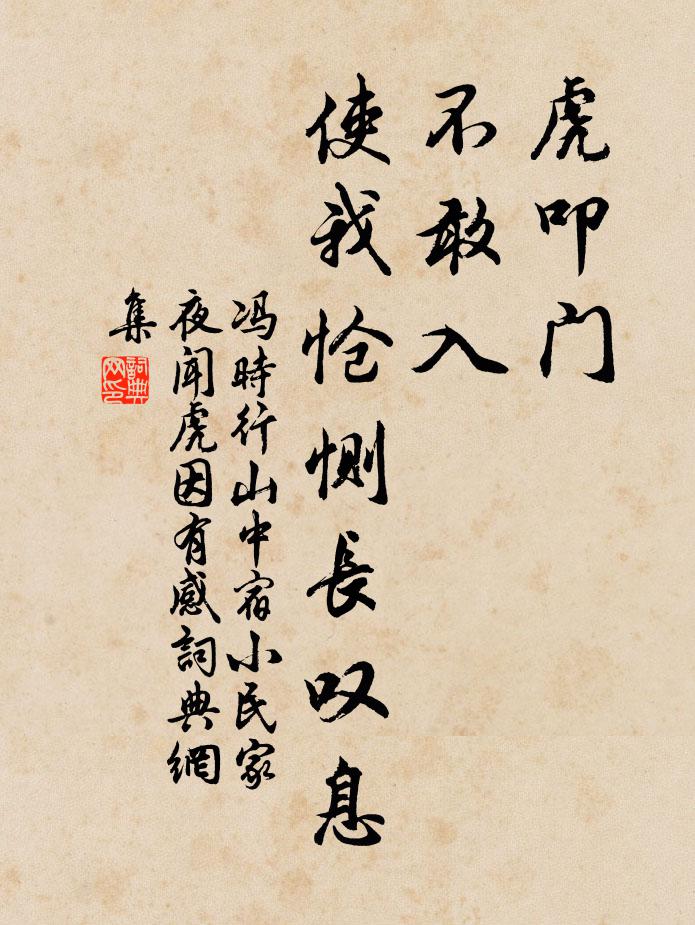 虎叩门
不敢入
使我怆恻長叹息
冯時行山中宿小民家
夜闻虎因有感詞典網
集
詞典
网印